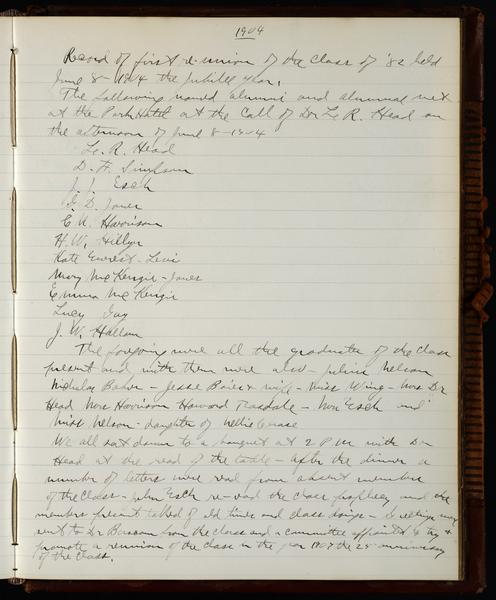 1904
Record of first re-union of the class of '82 held
June 8 - 1904 the jubilee year.
The following named alumni and alumnae met
at the Park Hotel at the call of Dr L. R. Head on
the afternoon of June 8 - 1904
L. R. Head
D. F. Simpson
J. J. Esch
D. Jones
E. N. Harrison
H. W. Hillyer
Kate Everest - Levi
Mary McKenzie - Jones
Emma McKenzie
Lucy Gay
J. W. Hallam
The foregoing were all the graduates of the class
present and with them were also - Nelson
Nicholas - Jesse & wife - Miss Wing - Mrs Dr
Head Mrs Harrison Howard Teasdale - Mrs Esch and
Miss Nelson - daughter of Nellie
We all sat down to a banquet at 2 P.M. with Dr
Head at the head of the table - after the dinner a
number of letters were read from absent members
of the class - John Esch re-read the class prophecy and the
members present talked of old times and class doings - Greetings were
sent to Dr Bascom from the class and a committee appointed to try &
promote a reunion of the class in the year 1907 the 25 anniversary
of the class.